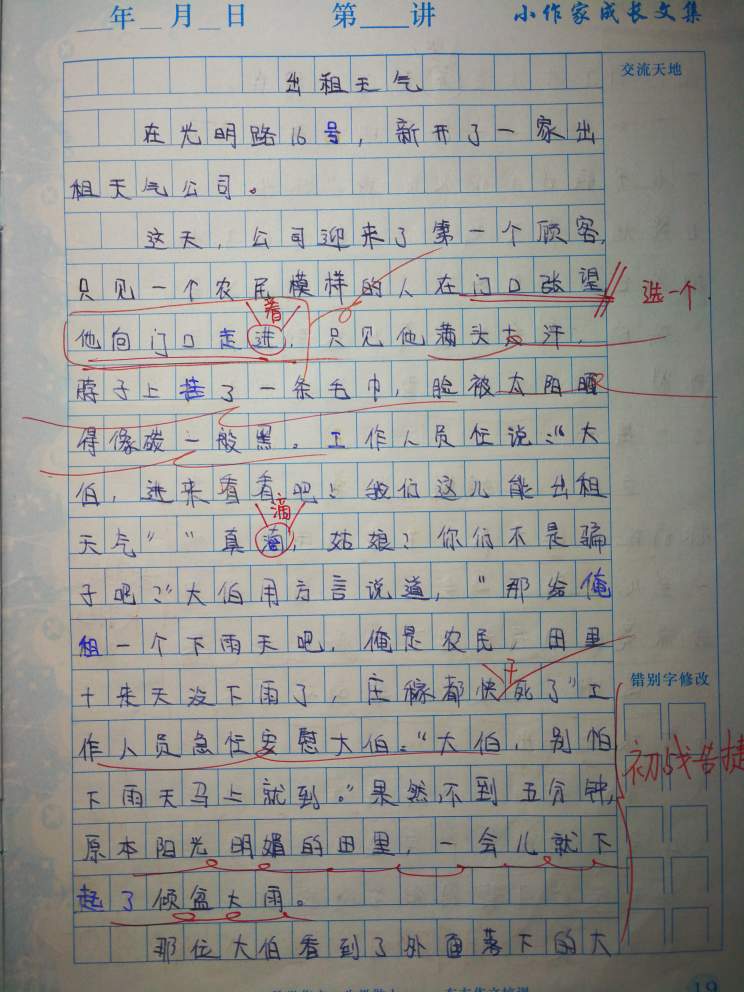 年 月 日 第 讲 小作家成长文集
交流天地
出租天气
在光明路16号，新开了一家出
租天气公司。
这天，公司迎来了第一个顾客，
只见一个农民模样的人在门口张望
选一个
着
他向门口走进，只见他满头大汗，
脖子上挂了一条毛巾，脸被太阳晒
得像碳一般黑。工作人员忙说：“大
伯，进来看看吧！我们这儿能出租
滴
天气”“真滴，姑娘？你们不是骗
子吧？”大伯用方言说道，“那给俺
租一个下雨天吧，俺是农民，田里
干
错别字修改
十来天没下雨了，庄稼都快死了”工
作人员急忙安慰大伯：“大伯，别怕
初战告捷
下雨天马上就到。”果然，不到五分钟，
原本阳光明媚的田里，一会儿就下
起了倾盆大雨。
那位大伯看到了外面落下的大
19